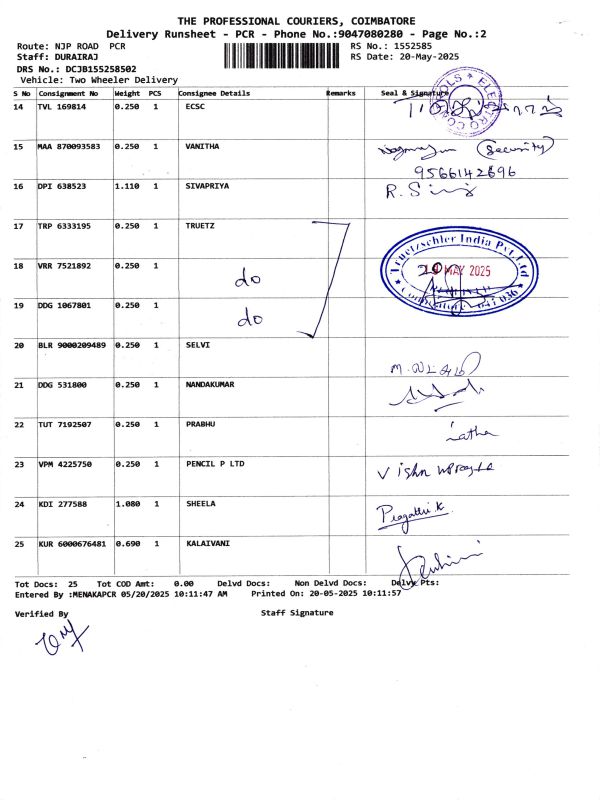 THE PROFESSIONAL COURIERS, COIMBATORE
Delivery Runsheet - PCR - Phone No.:9047080280 - Page No.:2
Route: NJP ROAD PCR
RS No.: 1552585
Staff: DURAIRAJ
RS Date: 20-May-2025
DRS No.: DCJB155258502
Vehicle: Two Wheeler Delivery
S No Consignment No Weight PCS Consignee Details Remarks Seal & Signature
14 TVL 169814 0.250 1 ECSC
15 MAA 870093583 0.250 1 VANITHA (Security)
9566142696
16 DPI 638523 1.110 1 SIVAPRIYA R.
17 TRP 6333195 0.250 1 TRUETZ
Truetzschler India Pvt. Ltd
18 VRR 7521892 0.250 1 do
MAY 2025
19 DDG 1067801 0.250 1 do
20 BLR 9000209489 0.250 1 SELVI
21 DDG 531800 0.250 1 NANDAKUMAR
22 TUT 7192507 0.250 1 PRABHU latha
23 VPM 4225750 0.250 1 PENCIL P LTD
24 KDI 277588 1.080 1 SHEELA Pragathi.K
25 KUR 6000676481 0.690 1 KALAIVANI
Tot Docs: 25 Tot COD Amt: 0.00 Delvd Docs: Non Delvd Docs: Delvy Pts:
Entered By :MENAKAPCR 05/20/2025 10:11:47 AM Printed On: 20-05-2025 10:11:57
Verified By Staff Signature